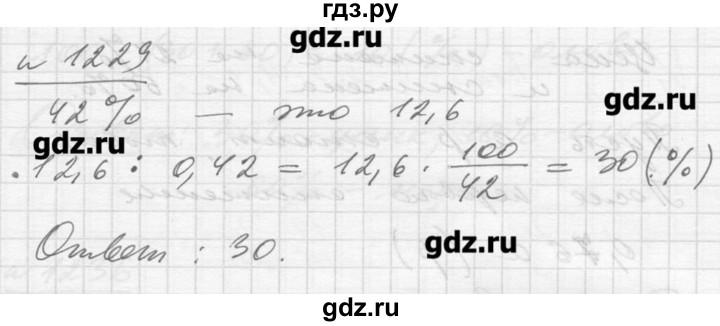 гдз.ру
gdz.ru
№ 1229
gdz.ru
42% — это 12,6
gdz.ru
12,6 : 0,42 = 12,6 · 100/42 = 30(%)
Ответ : 30.
gdz.ru
gdz.ru